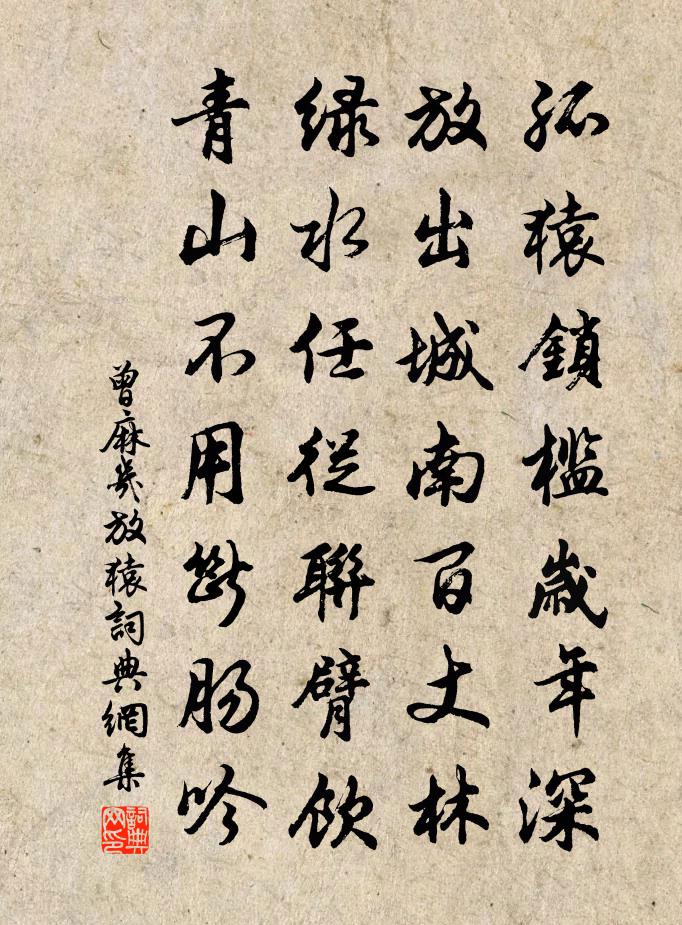 孤猿鎖檻歲年深
放出城南百丈林
綠水任從聯臂飲
青山不用斷腸吟
曾麻幾放猿詞典網集
詞典网印